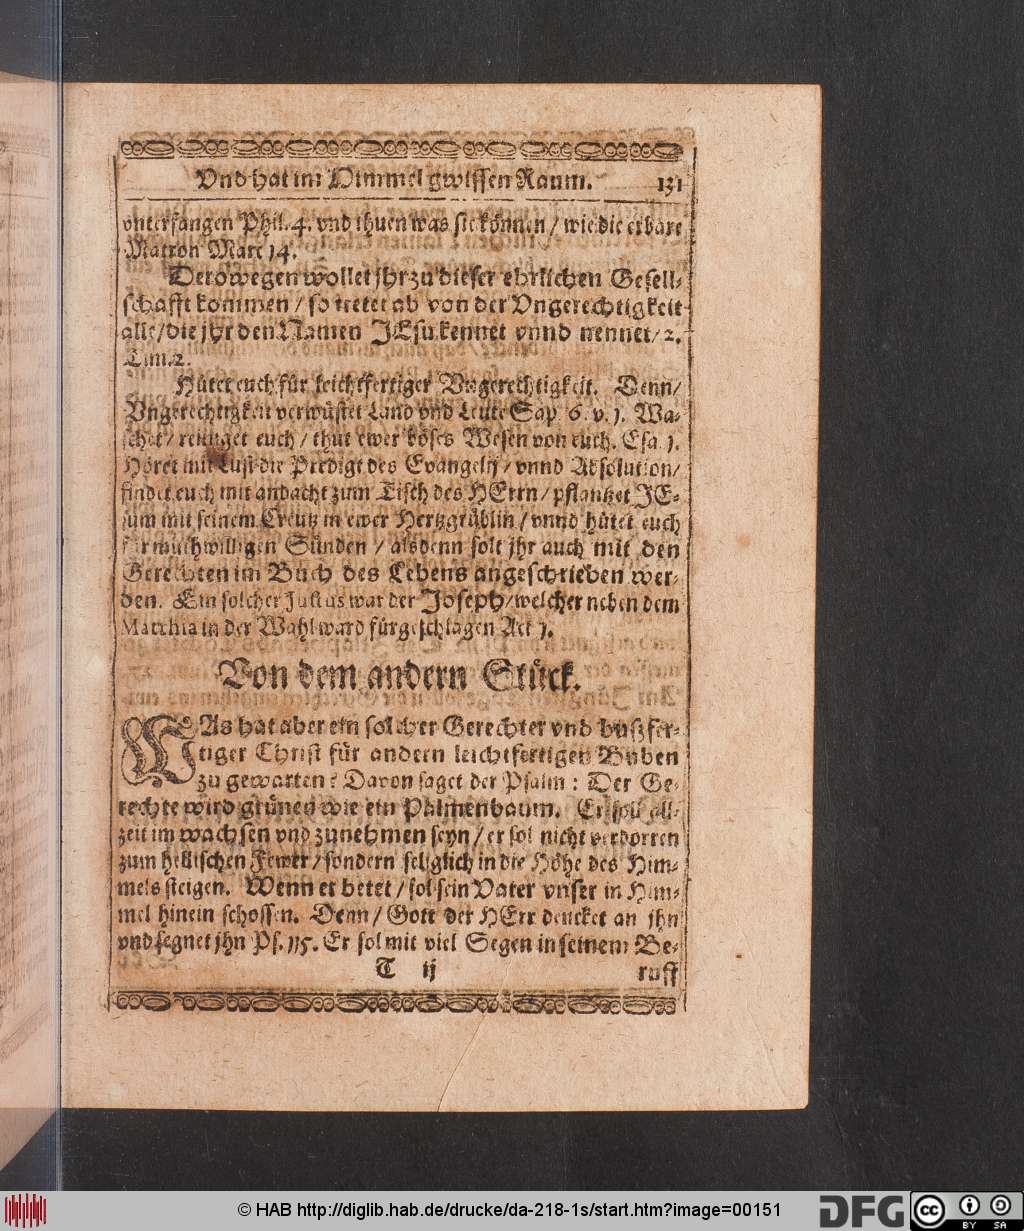 Vnd hat im Himmel gwissen Raum. 131
vnterfangen Phil. 4. vnd thuen was sie können / wie die erbare
Matron Marc 14.
Derowegen wollet jhr zu dieser ehrlichen Gesell-
schafft kommen / so tretet ab von der Vngerechtigkeit
alle / die jhr den Namen JEsu kennet vnnd nennet / 2.
Tim. 2.
Hütet euch für leichtfertiger Vngerechtigkeit. Denn /
Vngerechtigkeit verwüstet Land vnd Leute Sap. 6. v. 1. Wa-
schet / reiniget euch / thut ewer böses Wesen von euch. Esa. 1.
Höret mit Lust die Predigt des Evangelij / vnnd Absolution /
findet euch mit andacht zum Tisch des HErrn / pflantzet JE-
sum mit seinem Creutz in ewer Hertzgrüblin / vnnd hütet euch
für muthwilligen Sünden / alsdenn solt jhr auch mit den
Gerechten im Buch des Lebens angeschrieben wer-
den. Ein solcher Justus war der Joseph / welcher neben dem
Matthia in der Wahl ward fürgeschlagen Act 1.
Von dem andern Stück.
WAs hat aber ein solcher Gerechter vnd bußfer-
tiger Christ für andern leichtfertigen Buben
zu gewarten? Davon saget der Psalm: Der Ge-
rechte wird grünen wie ein Palmenbaum. Er soll all-
zeit im wachsen vnd zunehmen seyn / er sol nicht verdorren
zum hellischen Fewer / sondern seliglich in die Höhe des Him-
mels steigen. Wenn er betet / sol sein Vater vnser in Him-
mel hinein schossen. Denn / Gott der HErr dencket an jhn
vnd segnet jhn Ps. 115. Er sol mit viel Segen in seinem Be-
T ij ruff
© HAB http://diglib.hab.de/drucke/da-218-1s/start.htm?image=00151
DFG
cc BY SA